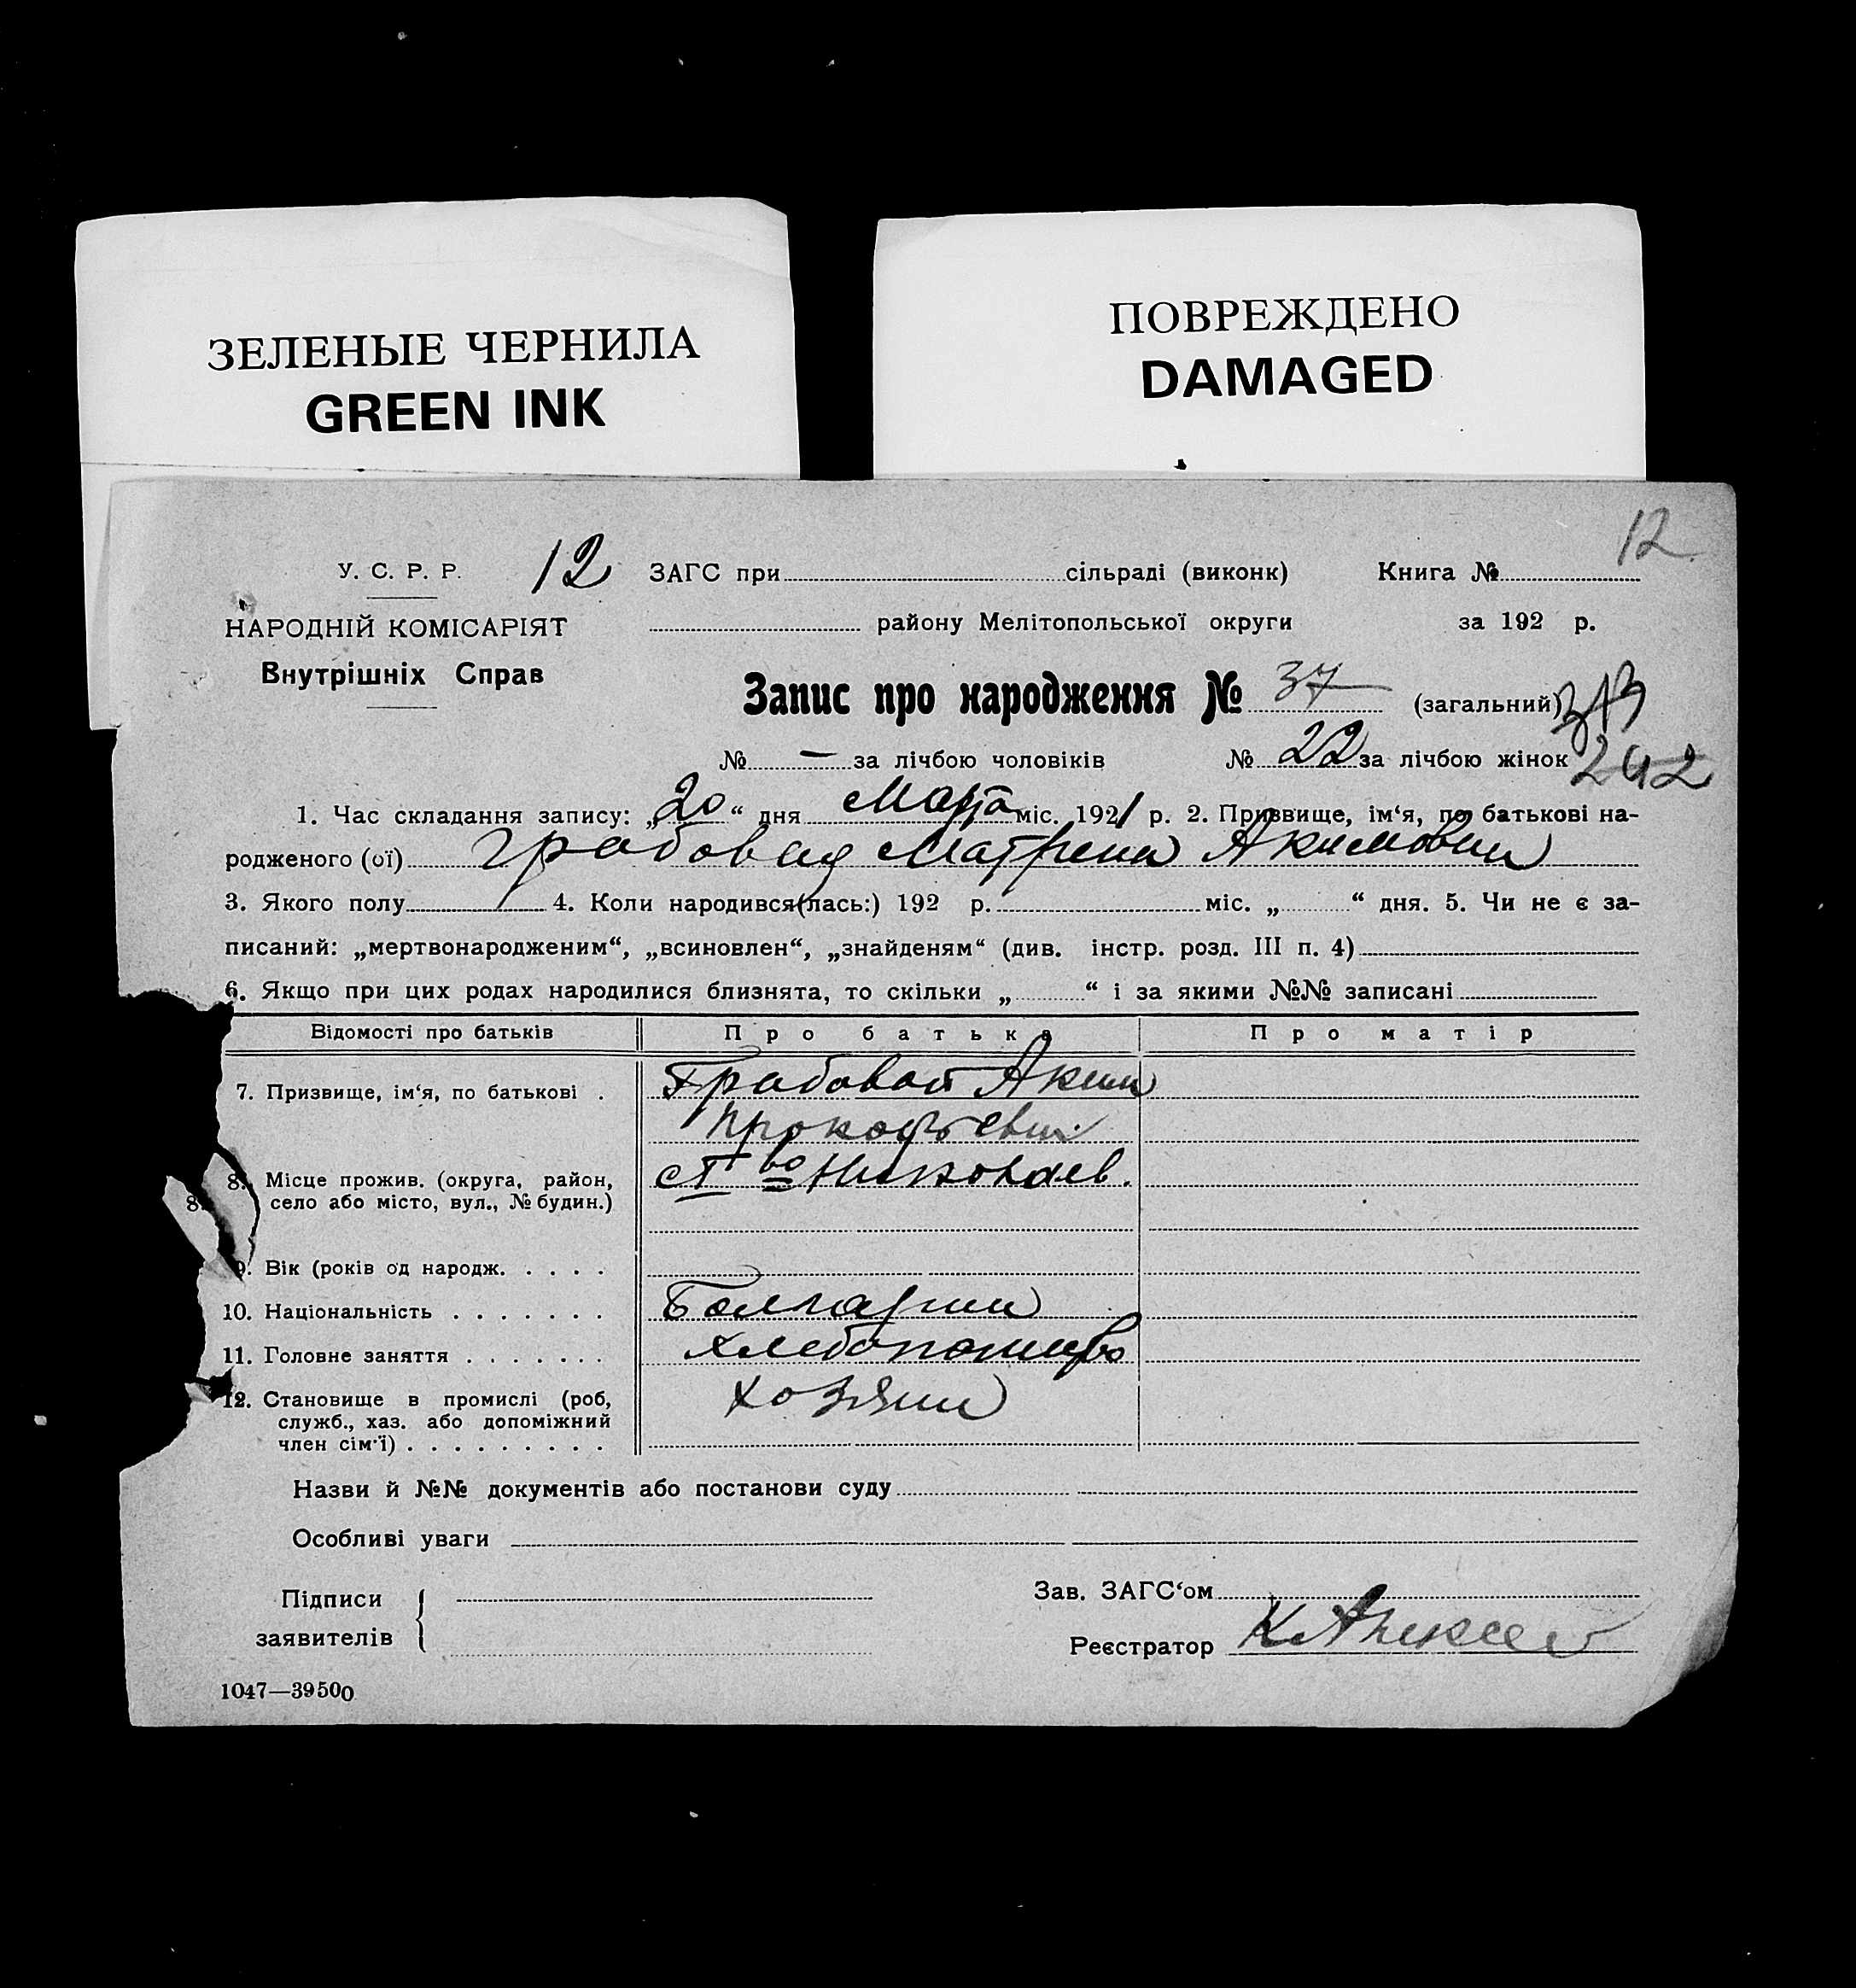 ЗЕЛЕНЫЕ ЧЕРНИЛА
GREEN INK
ПОВРЕЖДЕНО
DAMAGED
12
У. С. Р. Р. 12 ЗАГС при сільраді (виконк) Книга №
НАРОДНІЙ КОМІСАРІЯТ району Мелітопольської округи за 192 р.
Внутрішніх Справ
Запис про народження № 37 (загальний) 313
№ — за лічбою чоловіків № 22 за лічбою жінок 242
1. Час складання запису: „20“ дня Марта міс. 1921 р. 2. Призвище, ім‘я, по батькові на-
родженого (ої) Грабовая Матрена Акимовна
3. Якого полу 4. Коли народився(лась:) 192 р. міс. „ “ дня. 5. Чи не є за-
писаний: „мертвонародженим“, „всиновлен“, „знайденям“ (див. інстр. розд. III п. 4)
6. Якщо при цих родах народилися близнята, то скільки „ “ і за якими №№ записані
Відомості про батьків Про батька Про матір
7. Призвище, ім‘я, по батькові . Грабовой Аким
Прокофьевич
8. Місце прожив. (округа, район, Николаев.
8. село або місто, вул., № будин.)
9. Вік (років од народж. . . . .
10. Національність . . . . . . . Болгарин
11. Головне заняття . . . . . . . хлебопашество
12. Становище в промислі (роб, хозяин
служб., хаз. або допоміжний
член сім‘ї) . . . . . . . . .
Назви й №№ документів або постанови суду
Особливі уваги
Підписи Зав. ЗАГС‘ом
заявителів Реєстратор К Алексеев
1047—39500